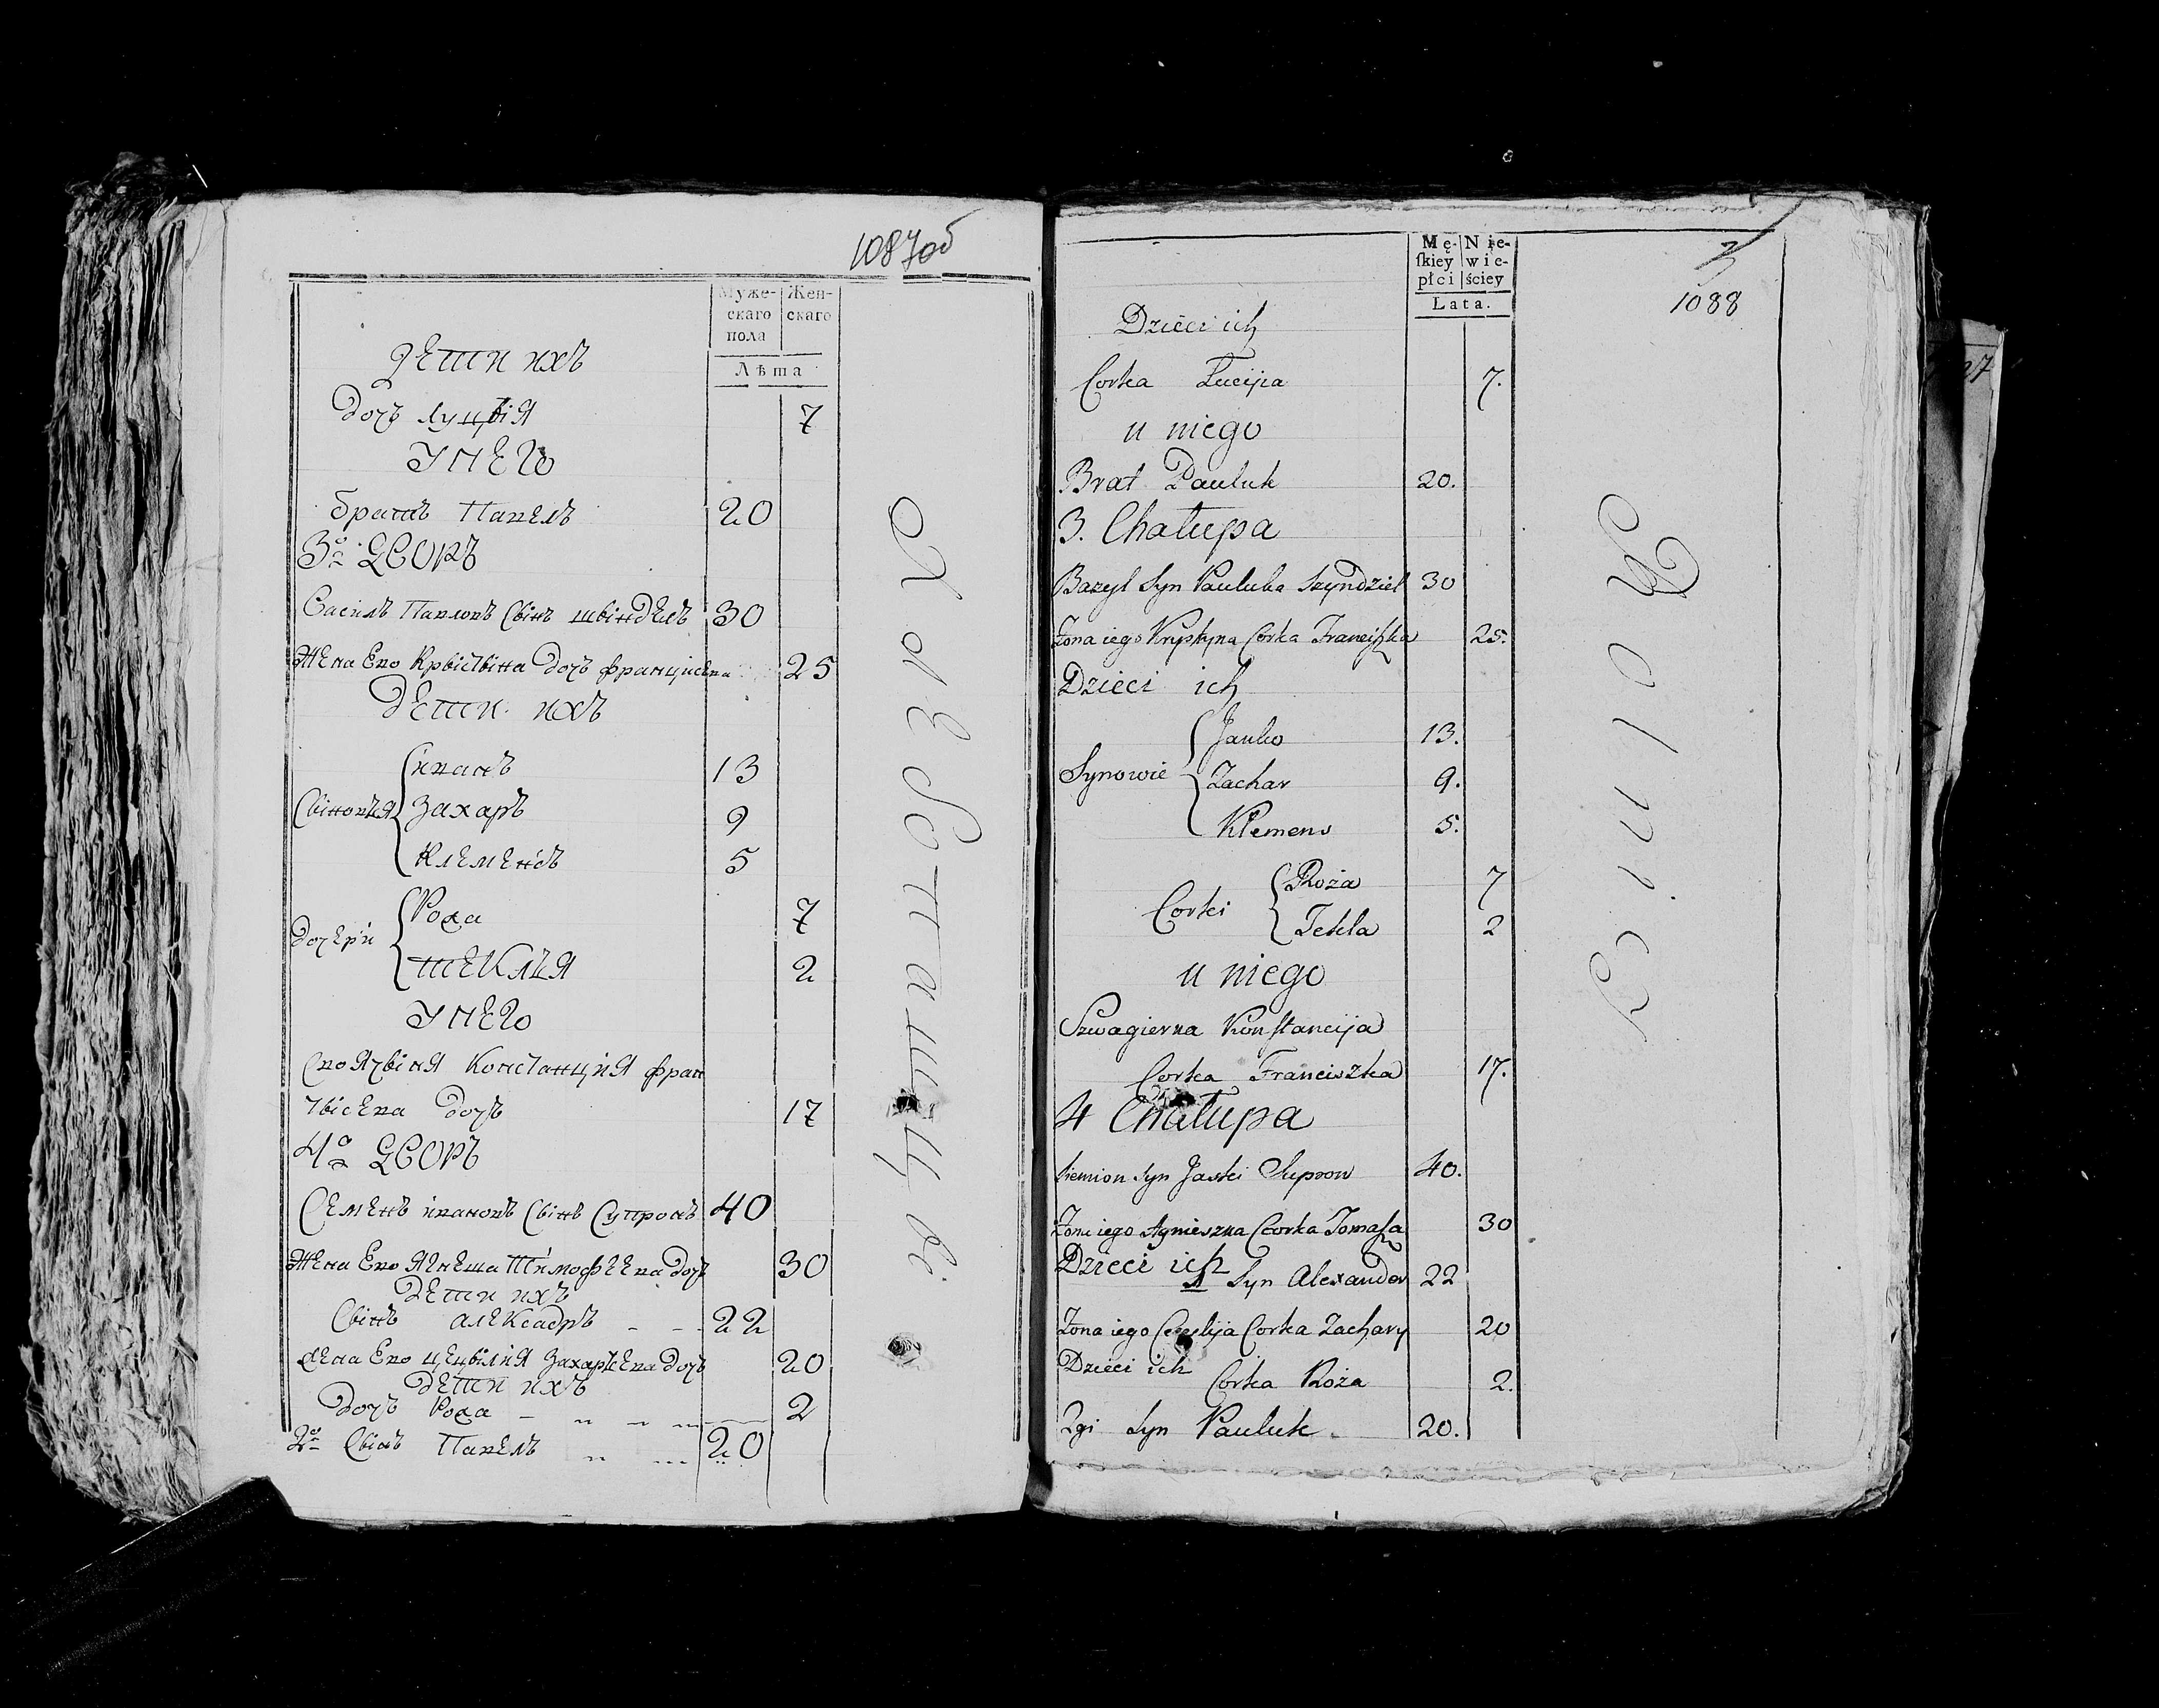 1087об
Муже- Жен-
скаго скаго
пола
Лѣта
Дети ихъ
дочь Луцыя 7
У него
братъ Павелъ 20
3й Дворъ
Василь Павловъ сынъ Шындель 30
Жена Ево Крыстына дочь францискова 25
Дети ихъ
Иванъ 13
Сыновья Захаръ 9
Клеменсъ 5
Рожа 7
дочери
Текля 2
У него
Своячыня Констанция фран
чысева дочь 17
4й Дворъ
Семенъ Ивановъ сынъ Супронъ 40
Жена Ево Агнеша Тимофеева дочь 30
Дети ихъ
сынъ алексадръ 22
Жена Ево Цецылия Захарьева дочь 20
Дети ихъ
дочь Рожа 2
2й сынъ Павелъ 20
Хлебопашцы
Mę- Nie-
skiey wie-
płci ściey
Lata.
3
1088
Dzieci ich
Corka Łucyja 7.
u niego
Brat Pauluk 20.
3. Chałupa
Bazyl Syn Pauluka Szyndziel 30
Żona iego Krystyna Corka Franciszka 25.
Dzieci ich
Janko 13.
Synowie Zachar 9.
Klemens 5.
Roża 7
Corki
Tekla 2
u niego
Szwagierka Konstancyja
Corka Franciszka 17.
4 Chałupa
Siemion Syn Jaski Supron 40.
Żona iego Agnieszka Corka Tomasza 30
Dzieci ich
1 Syn Alexander 22
Żona iego Cecylija Corka Zachary 20
Dzieci ich
Corka Roża 2.
2gi Syn Pauluk 20.
Rolnicy